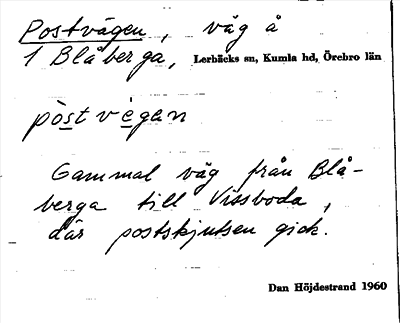 Postvägen, väg å
1 Blåberga, Lerbäcks sn, Kumla hd, Örebro län
pòstvègan
Gammal väg från Blå-
berga till Vissboda,
där postskjutsen gick.
Dan Höjdestrand 1960